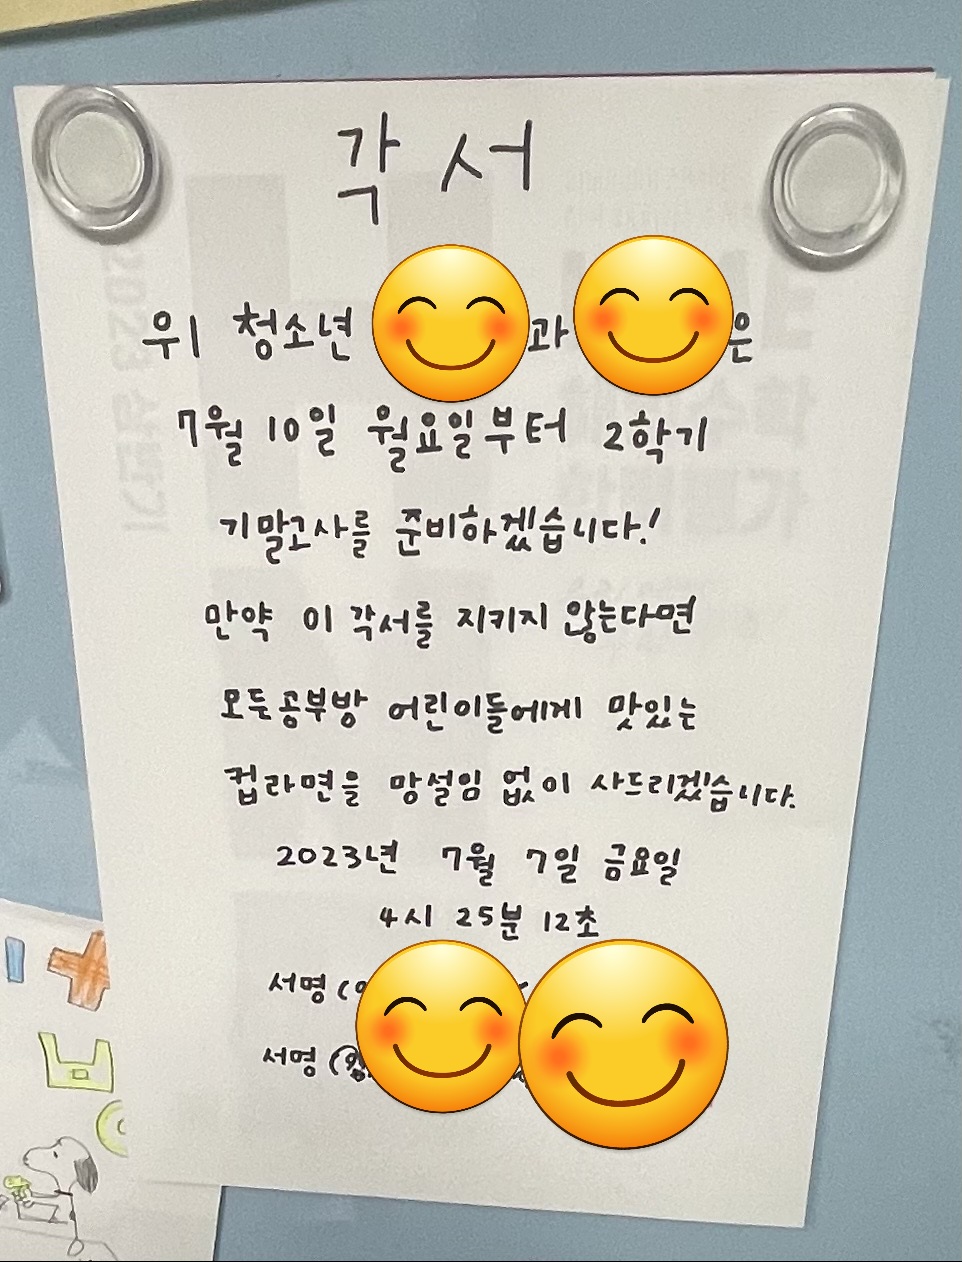 각서
위 청소년 과 은
7월 10일 월요일부터 2학기
기말고사를 준비하겠습니다!
만약 이 각서를 지키지 않는다면
모든공부방 어린이들에게 맛있는
컵라면을 망설임 없이 사드리겠습니다.
2023년 7월 7일 금요일
4시 25분 12초
서명 (
서명 (